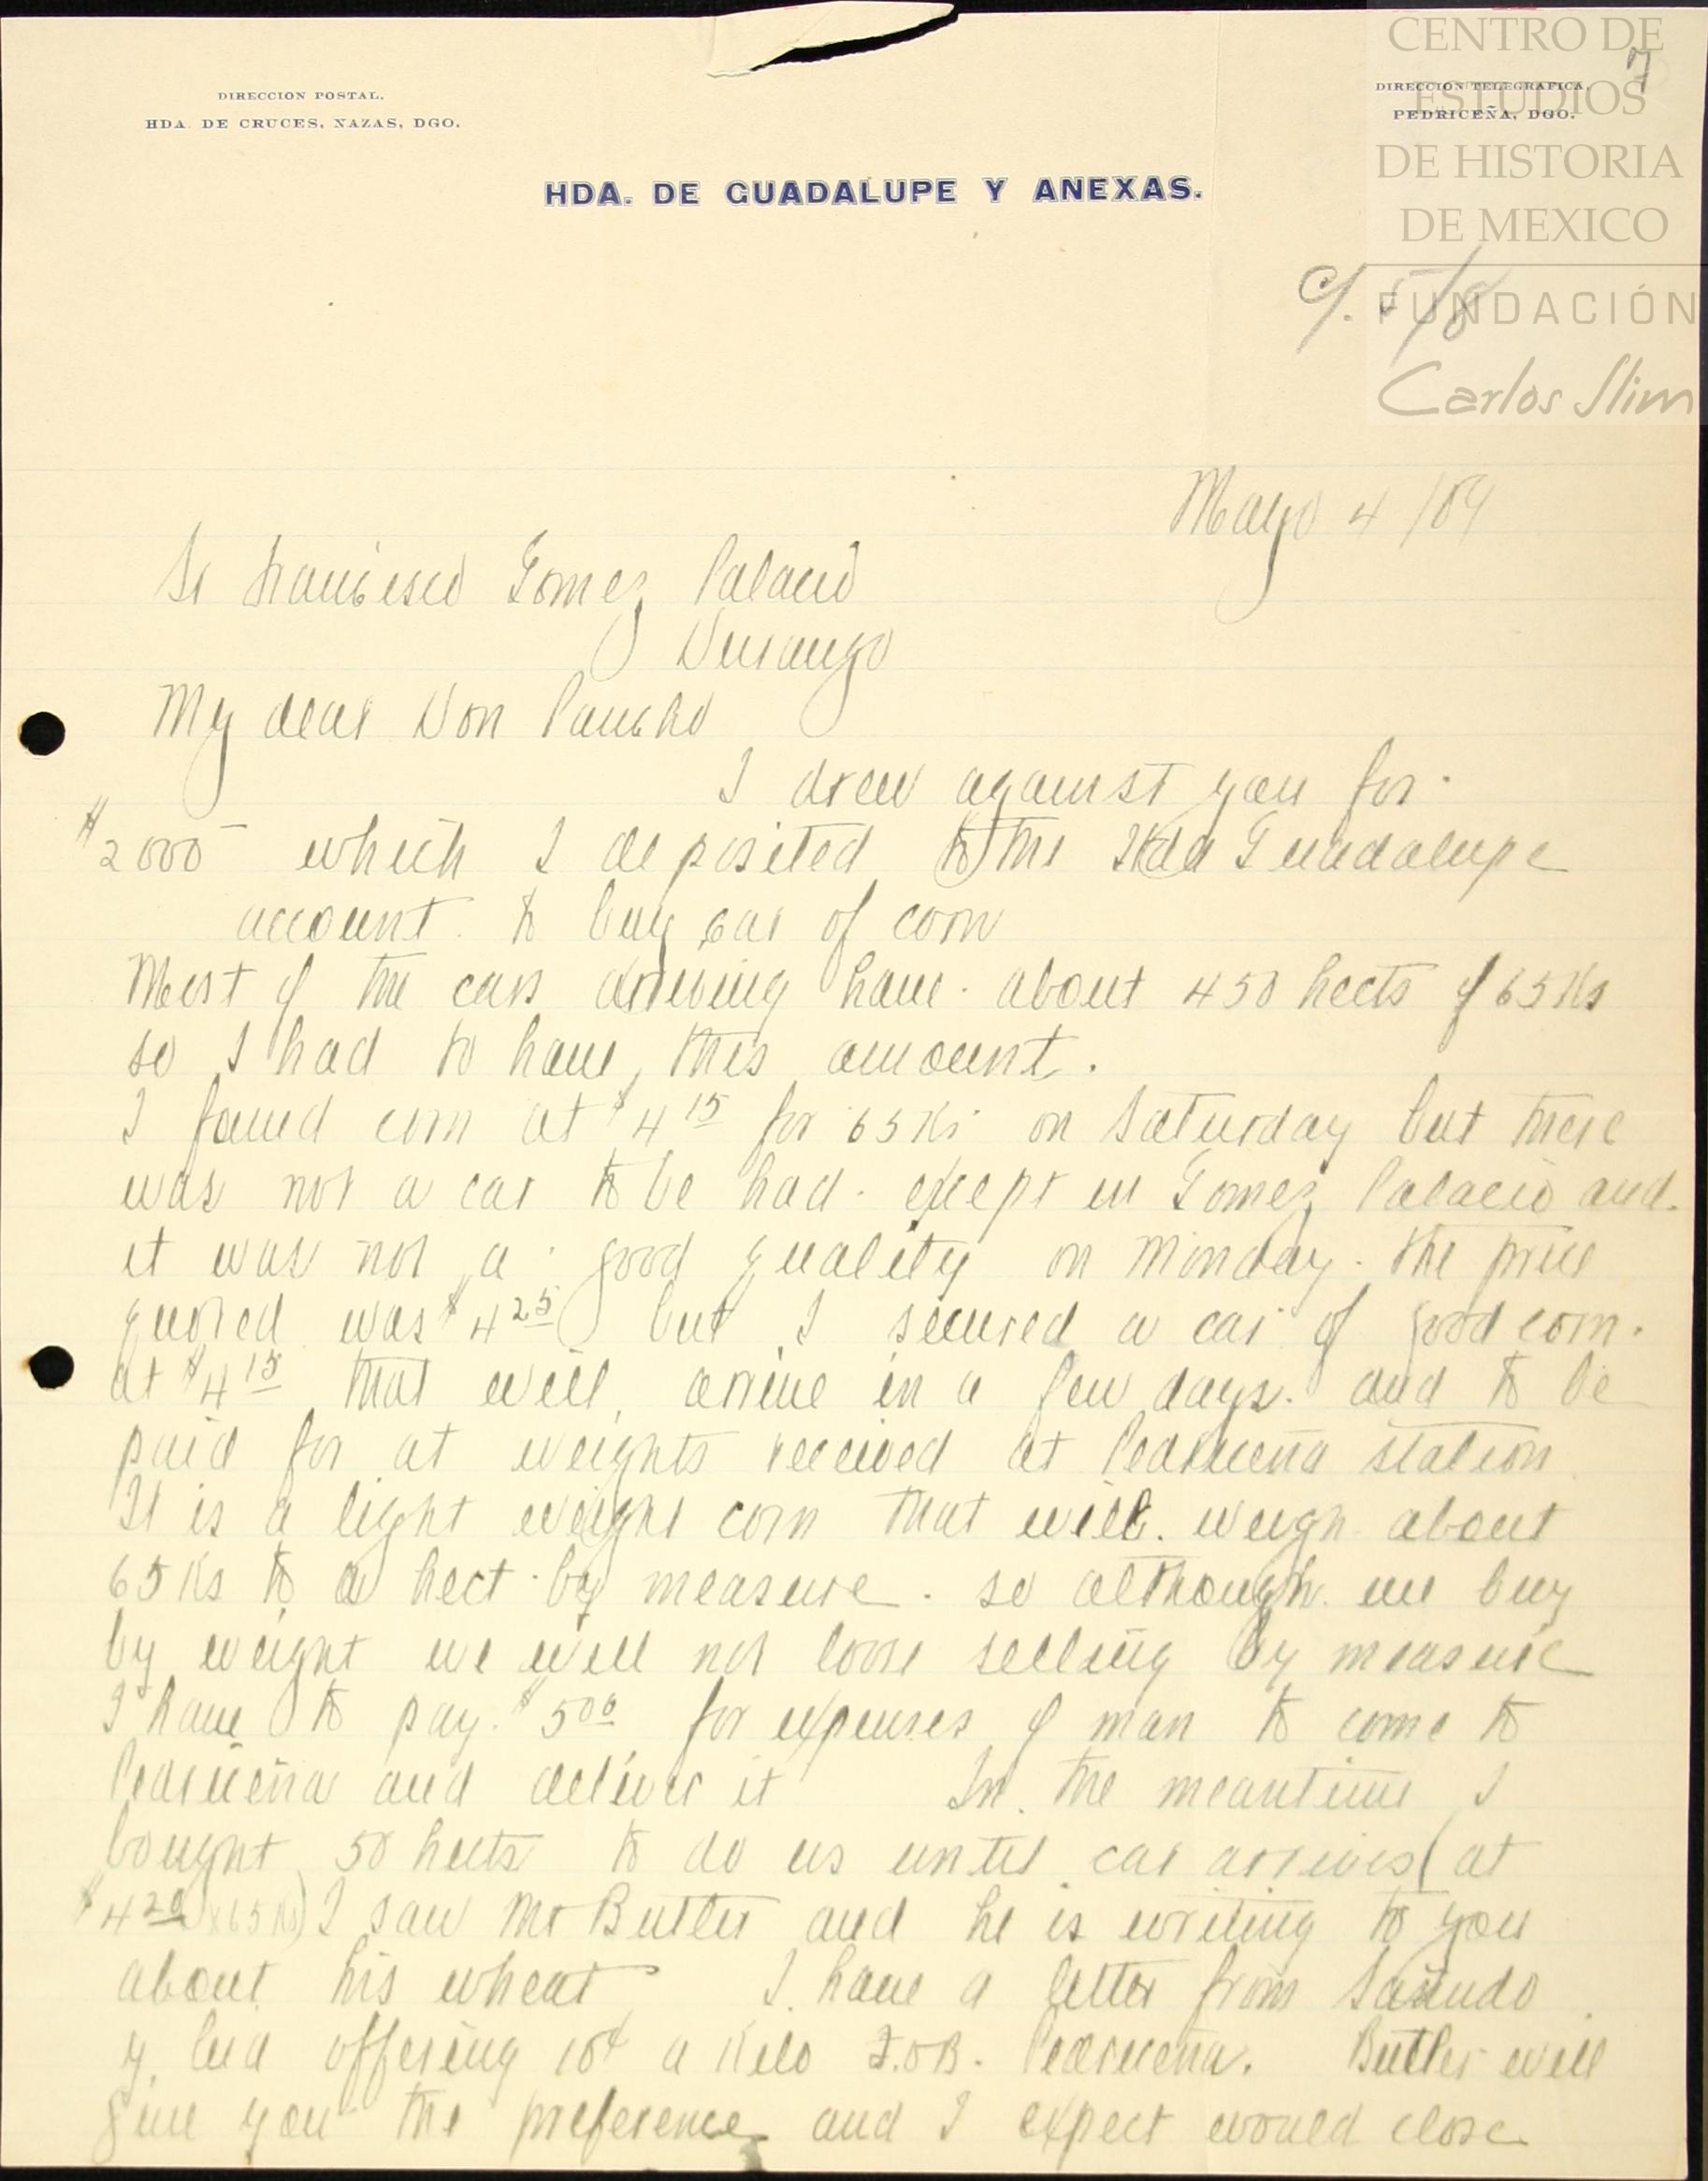 DIRECCION POSTAL,
HDA. DE CRUCES, NAZAS, DGO.
DIRECCION TELEGRAFICA,
PEDRICEÑA, DGO.
7
CENTRO DE
ESTUDIOS
DE HISTORIA
DE MEXICO
FUNDACIÓN
Carlos Slim
HDA. DE GUADALUPE Y ANEXAS.
c/. 5/8
Mayo 4/09
Sr Francisco Gomez Palacio
Durango
My dear Don Pancho
I drew against you for
$2000- which I deposited to the Hda Guadalupe
account. to buy car of corn
Most of the cars arriving have about 450 hects of 65Ks
so I had to have this amount.
I found corn at $4 15 for 65Ks on Saturday but there
was not a car to be had except in Gomez Palacio and.
it was not a good quality on Monday. the price
quoted was $4 25 but I secured a car of good corn.
at $4 15 that will arrive in a few days. and to be
paid for at weights received at Pedriceña station
It is a light weight corn that will. weigh about
65Ks to a hect by measure. so although we buy
by weight we will not loose selling by measure
I have to pay. $5 00 for expenses of man to come to
Pedriceña and deliver it In the meantime I
bought 50 hects to do us until car arrives (at
$4 20 x 65 Ks) I saw Mr Butler and he is writing to you
about his wheat I have a letter from Sañudo
y Cia offering 10¢ a Kilo F.O.B. Pedriceña. Butler will
give you the preference and I expect would close